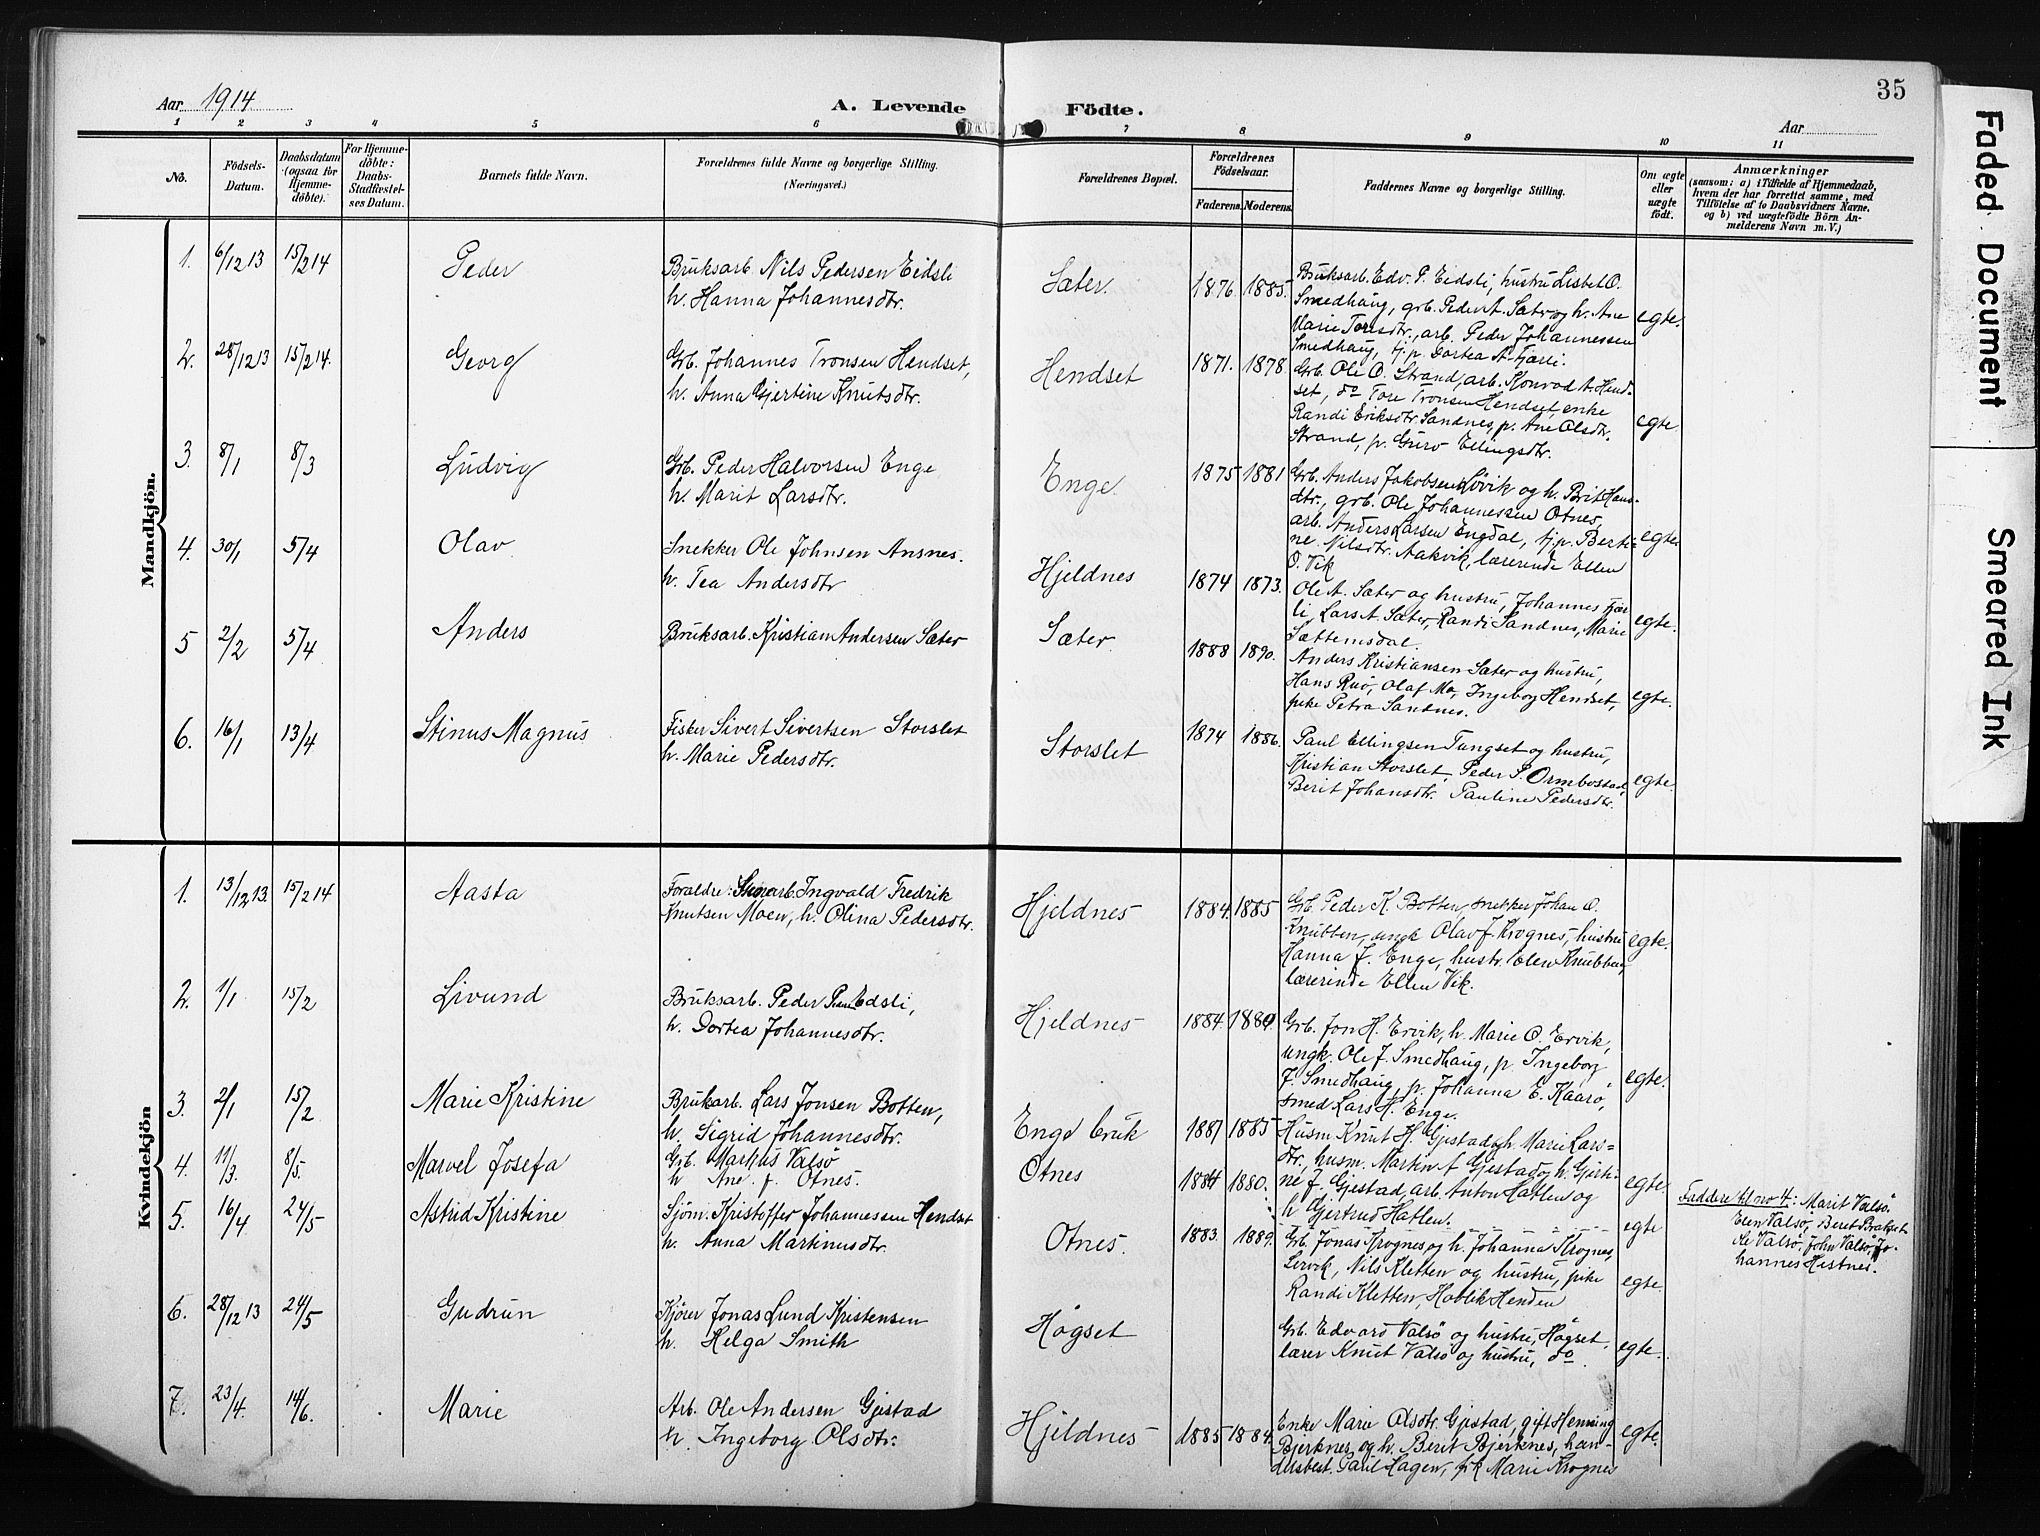 35
Aar 1914
A. Levende Födte.
Aar
1 2 3 4 5 6 7 8 9 10 11
No.
Födsels-Datum.
Daabsdatum (ogsaa for Hjemmedöbte).
For Hjemmedöbte: Daabs-Stadfæstelses Datum.
Barnets fulde Navn.
Forældrenes fulde Navne og borgerlige Stilling. (Næringsvei.)
Forældrenes Bopæl.
Forældrenes Födselsaar.
Faderens. Moderens.
Faddernes Navne og borgerlige Stilling.
Om ægte eller uægte födt.
Anmærkninger
(saasom: a) i Tilfælde af Hjemmedaab, hvem der har forrettet samme, med Tilföielse af to Daabsvidners Navne, og b) ved uægtefödte Börn Anmelderens Navn m. V.)
Mandkjön.
1. 6/12 13 15/2 14 Peder
Bruksarb. Nils Pedersen Eidsli
h. Hanna Johannesdtr.
Sæter. 1876. 1885.
Bruksarb. Edv. P. Eidsli, hustru Lisbet O.
Smedhaug, grb. Peder A. Sæter og h. Ane
Marie Toresdtr., arb. Peder Johannessen
Smedhaug, tj.p. Dortea A. Fjærli.
egte.
2. 28/12 13 15/2 14. Georg
Grb. Johannes Tronsen Hendset,
h. Anna Gjertine Knutsdtr.
Hendset 1871. 1878.
Grb. Ole O. Strand, arb. Konrad A. Hend-
set, do Tore Tronsen Hendset, enke
Randi Eriksdtr. Sandnes, p. Ane Olsdtr.
Strand, p. Guro Ellingsdtr.
egte.
3. 8/1 8/3 Ludvig
Grb. Peder Halvorsen Enge
h. Marit Larsdtr.
Enge. 1875 1881
Grb. Anders Jakobsen Lövik og h. Brit Hans-
dtr., grb. Ole Johannessen Otnes,
arb. Anders Larsen Engdal, tj.p. Berti-
ne Nilsdtr. Aakvik, lærerinde Ellen
O. Vik
egte
4. 30/1 5/4 Olav
Snekker Ole Johnsen Ansnes.
h. Tea Andersdtr
Hjeldnes 1874 1873.
Ole A. Sæter og hustru, Johannes Fjær-
li, Lars A. Sæter, Randi Sandnes, Marie
Sættemsdal.
egte.
5 2/2 5/4 Anders
Bruksarb. Kristian Andersen Sæter
Sæter. 1888 1890.
Anders Kristiansen Sæter og hustru,
Hans Ruö, Olaf Mo, Ingeborg Hendset,
pike Petra Sandnes.
egte.
6. 16/1 13/4 Stinus Magnus
Fisker Sivert Sivertsen Storslet
h. Marie Pedersdtr.
Storslet 1874 1886.
Paul Ellingsen Tungset og hustru,
Kristian Storslet, Peder S. Ormbostad,
Berit Johansdtr. Pauline Pedersdtr.
egte.
Kvindekjön
1. 13/12 13. 15/2 14 Aasta
Foraldre: arb. Ingvald Fredrik
Knutsen Moen, h. Olina Pedersdtr.
Hjeldnes 1884. 1885
Grb. Peder K. Botten, snekker Johan O.
Knubben, ungk Olav J. Krognes, hustru
Hanna J. Enge, hustr. Elen Knubben
lærerinde Ellen Vik.
egte.
2. 1/1 15/2 Livund
Bruksarb. Peder Edsli,
h. Dortea Johannesdtr.
Hjeldnes 1884.
Grb. Jon H. Ervik, h. Marie O. Ervik,
ungk. Ole J. Smedhaug, p. Ingeborg
J. Smedhaug, p. Johanna E. Kaarö,
smed Lars H. Enge.
egte.
3. 2/1 15/2 Marie Kristine
Bruksarb. Lars Jonsen Botten,
h. Sigrid Johannesdtr.
Enge bruk 1881 1885
Husm Knut H. Gjestad og h. Marie Lars-
dtr., husm. Martin A. Gjestad og h. Gjerti-
ne J. Gjestad, arb. Anton Hatlen og
h Gjertrud Hatlen.
egte.
4. 11/3 8/5. Marvel Josefa
Grb. Markus Valsö
h Ane. f. Otnes.
Otnes 1884 1880.
egte
Faddere til no 4: Marit Valsö
Elen Valsö, Beret Brakset
Ole Valsö, John Valsö, Jo-
hannes Hestnes.
5. 16/4 24/5 Astrid Kristine
Sjöm. Kristoffer Johannessen Hendset
h. Anna Martinusdtr.
Otnes. 1883. 1889.
Grb. Jonas Krognes og h. Johanna Krognes,
Lervik, Nils Kletten og hustru, pike
Randi Kletten, Henden
egte.
6. 28/12 13 24/5 Gudrun
Kjörer Jonas Lund Kristensen
h. Helga Smith
Högset
Grb. Edvard Valsö og hustru, Högset,
lærer Knut Valsö og hustru, do.
egte.
7. 23/4. 14/6. Marie
Arb. Ole Andersen Gjestad
h. Ingeborg Olsdtr.
Hjeldnes 1885 1884.
Enke Marie Olsdtr. Gjestad, gift Henning
Bjerknes og h. Berit Bjerknes, han-
delsbest. Paul Hagen, pk Marie Krognes
egte.
Faded Document
Smeared Ink